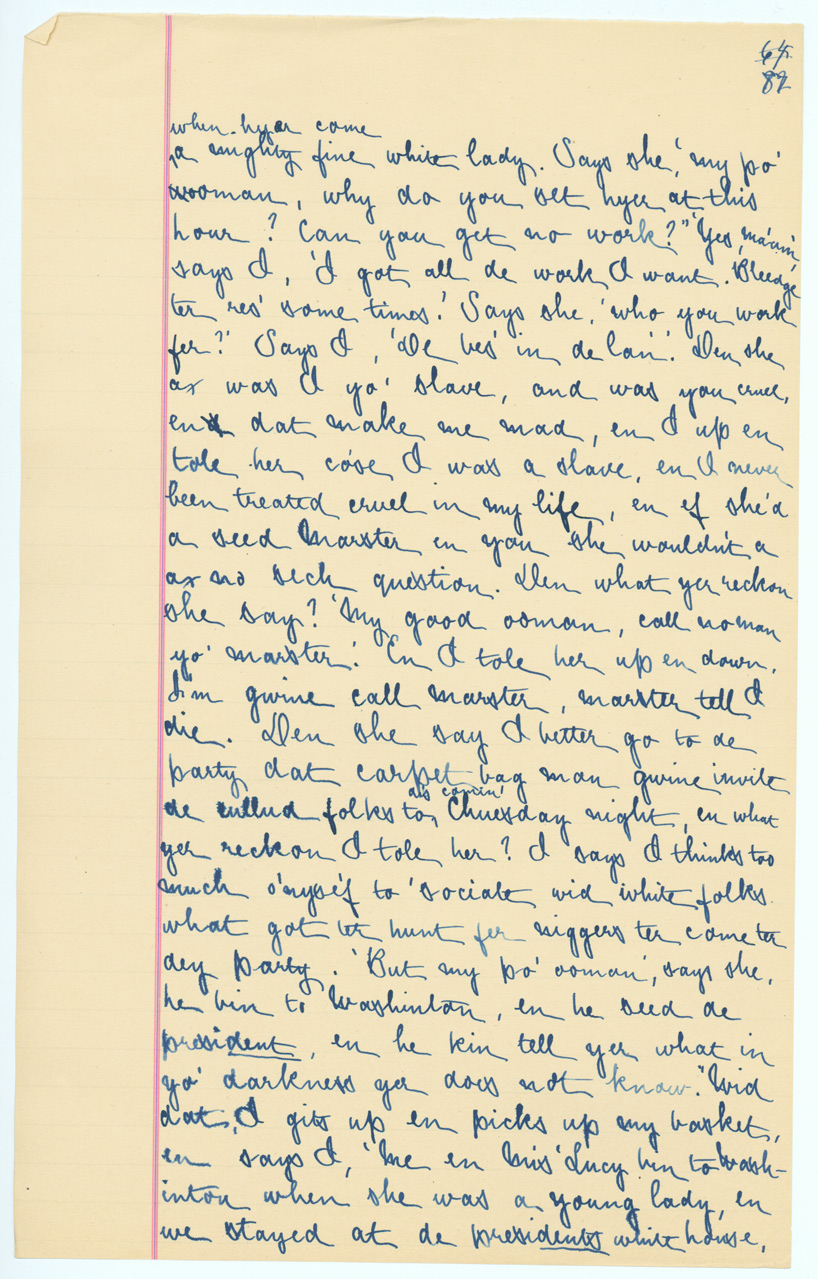 64.
82
when hyer come
a mighty fine white lady. Says she, 'my po'
wooman, why do you set hyer at this
hour? Can you get no work?" 'Yes, ma'am,'
says I, 'I got all de work I want. Bleedge
ter res' some times.' Says she, 'who you work
fer?' Says I, 'De bes' in de lan'.' Den she
ax was I yo' slave, and was you cruel,
en dat make me mad, en I up en
tole her co'se I was a slave, en I never
been treated cruel in my life, en ef she'd
a seed Marster en you she wouldn't a
ax no sech question. Den what yer reckon
she say? 'My good ooman, call no man
yo' marster.' En I tole her up en down,
I'm gwine call marster, marster tell I
die. Den she say I better go to de
party dat carpet-bag man gwine invite
de cullud folks to, dis comin'
Chuesday night, en what
yer reckon I tole her? I says I thinks too
much o' myse'f to 'sociate wid white folks
what got ter hunt fer niggers ter come ter
dey party. 'But my po' ooman', says she,
he bin to Washinton, en he seed de
president, en he kin tell yer what in
yo' darkness yer does not know." Wid
dat, I gits up en picks up my basket,
en says I, 'Me en Mis' Lucy bin to Wash-
inton when she was a young lady, en
we stayed at de presidents white house,